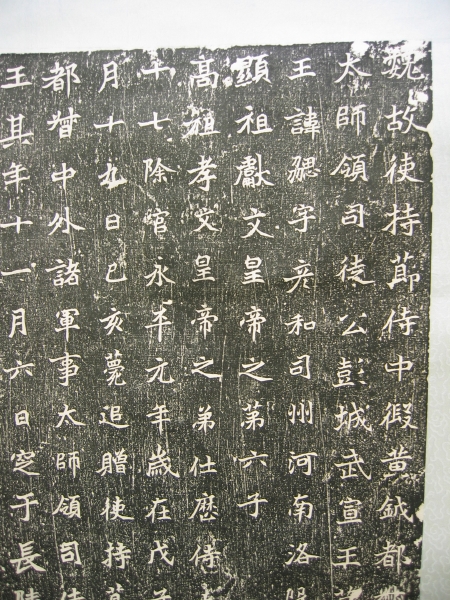 魏故使持節侍中假黄鉞都
太師領司徒公彭城武宣王
王諱勰字彦和司州河南洛陽
顯祖獻文皇帝之第六子
高祖孝文皇帝之弟仕歷侍
十七除官永平元年歲在戊子
月十九日己亥薨追贈使持節
都督中外諸軍事太師領司徒
王其年十一月六日窆于長陵